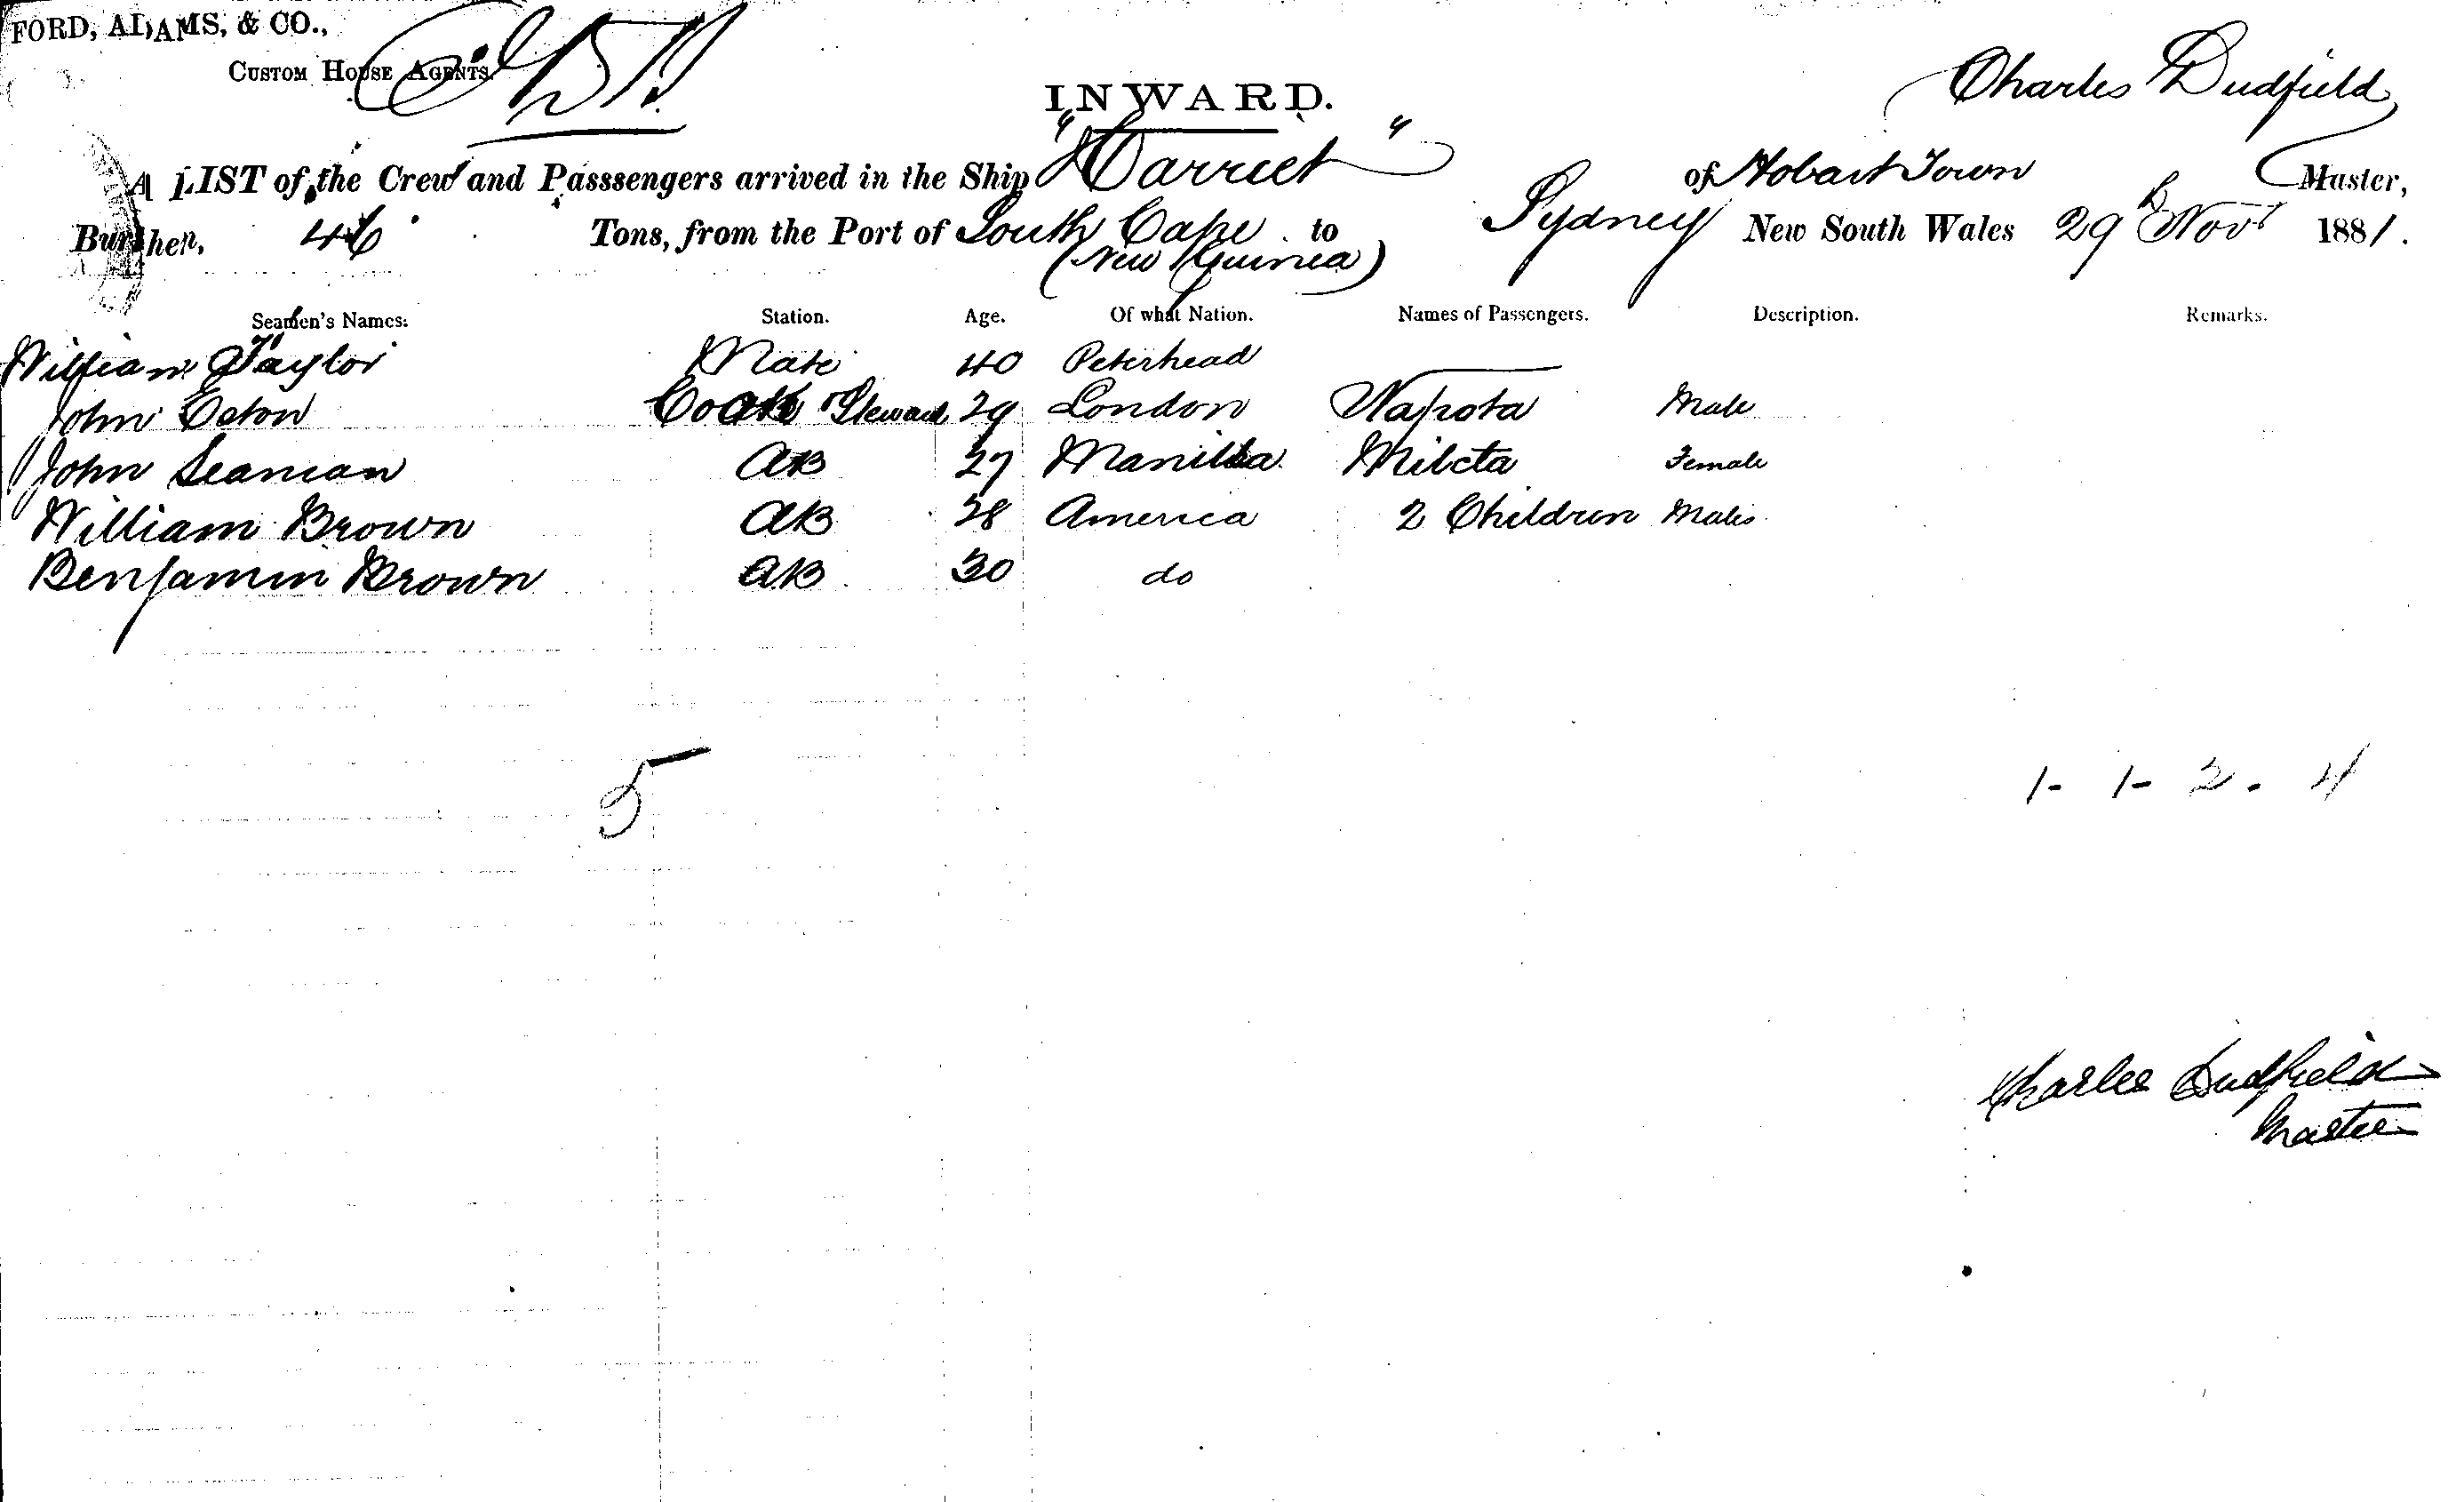 FORD, ADAMS, & CO.,
CUSTOM HOUSE AGENTS.
INWARD.
Charles Dudfield
A LIST of the Crew and Passsengers arrived in the Ship "Harriet" of Hobart Town Master,
Burthen, 46 Tons, from the Port of South Cape to Sydney New South Wales 29th Novr 1881.
(New Guinea)
Seamen's Names. Station. Age. Of what Nation. Names of Passengers. Description. Remarks.
William Taylor Mate 40 Peterhead
John Eeton Cook & Steward 29 London Napota Male
John Seaman AB 27 Manilla Mileta Female
William Brown AB 28 America 2 Children Males
Benjamin Brown AB 30 do
5
1- 1- 2. 4
Charles Dudfield
Master